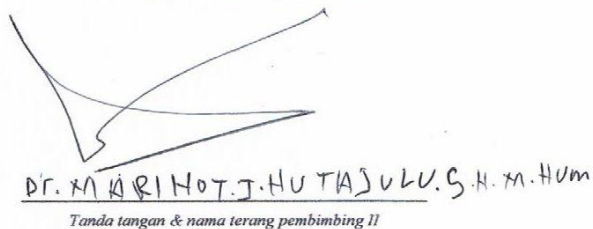 Dr. MARIHOT.J.HUTAJULU.S.H.M.HUM
Tanda tangan & nama terang pembimbing II